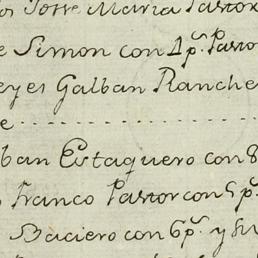 Torre Maria Pastor
Simon con 1 p.s Pasto
eyes Galban Ranche
e
ban Estaquero con 8
Franco Pastor con 5 p.s
Baciero con 6 p.s y su